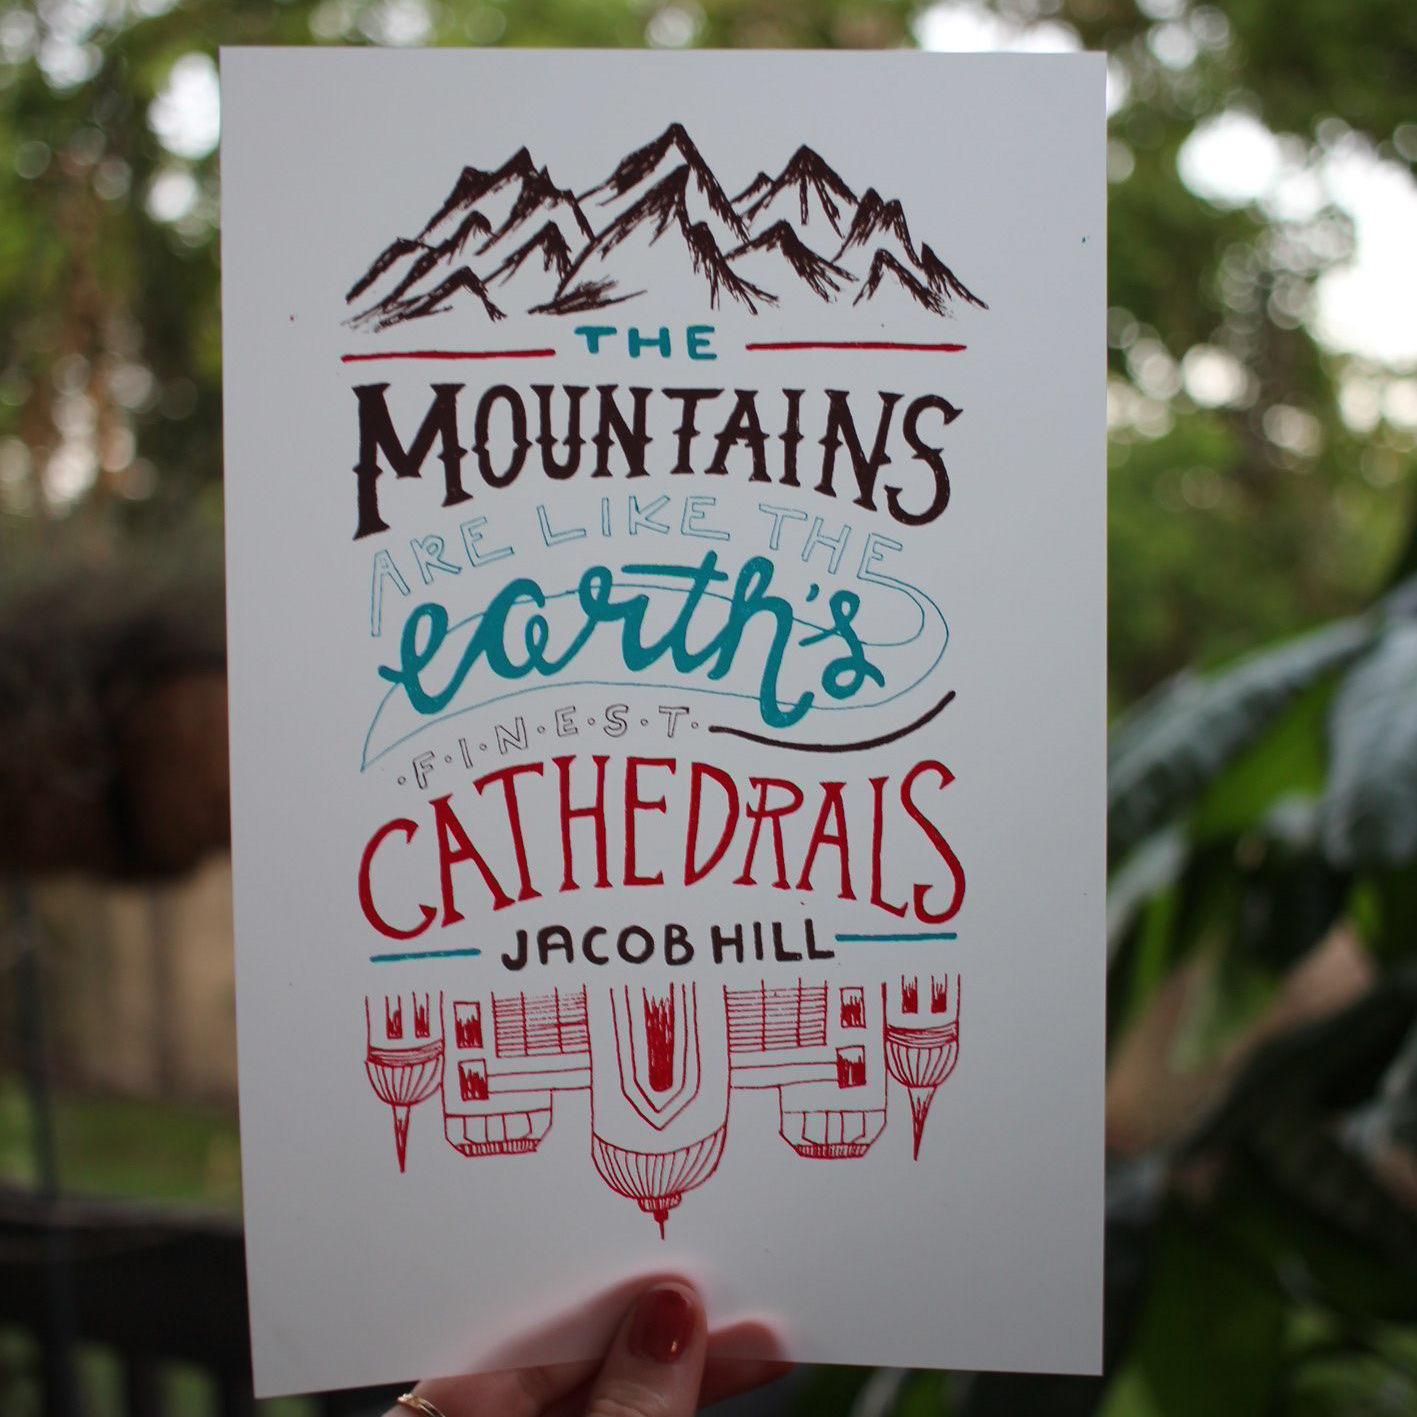 THE
MOUNTAINS
ARE LIKE THE
earth's
·F·I·N·E·S·T·
CATHEDRALS
JACOB HILL